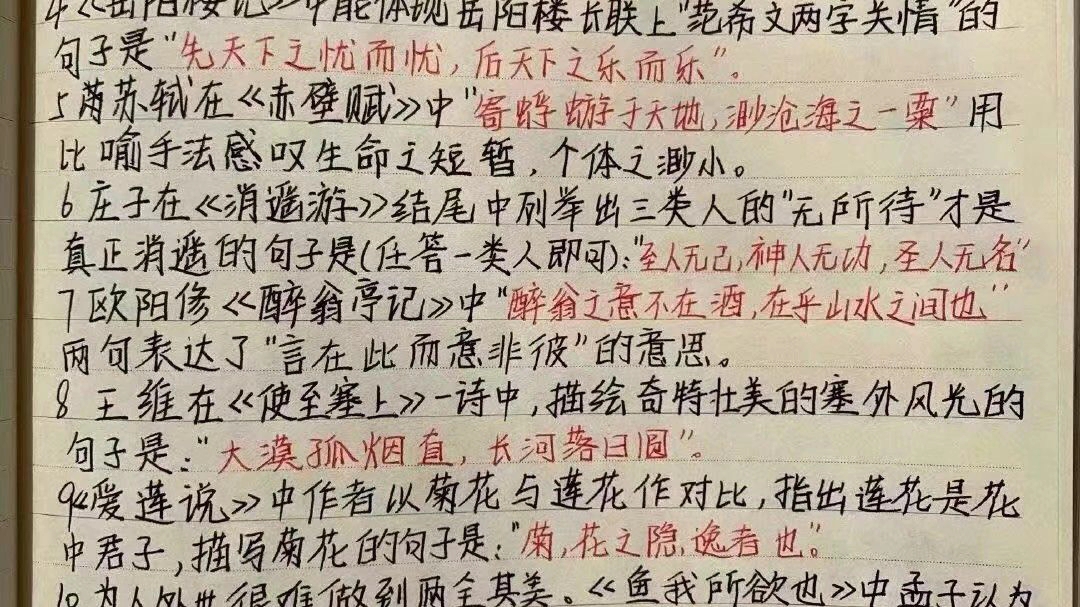 4《岳阳楼记》中能体现岳阳楼长联上"范希文两字关情"的
句子是"先天下之忧而忧,后天下之乐而乐"。
5苏轼在《赤壁赋》中"寄蜉蝣于天地,渺沧海之一粟"用
比喻手法感叹生命之短暂,个体之渺小。
6庄子在《消遥游》结尾中列举出三类人的"无所待"才是
真正消遥的句子是(任答一类人即可):"至人无己,神人无功,圣人无名"
7欧阳修《醉翁亭记》中"醉翁之意不在酒,在乎山水之间也"
两句表达了"言在此而意非彼"的意思。
8王维在《使至塞上》一诗中,描绘奇特壮美的塞外风光的
句子是:"大漠孤烟直,长河落日圆"。
9《爱莲说》中作者以菊花与莲花作对比,指出莲花是花
中君子,描写菊花的句子是:"菊,花之隐逸者也。"
10为人处世很难做到两全其美。《鱼我所欲也》中孟子认为